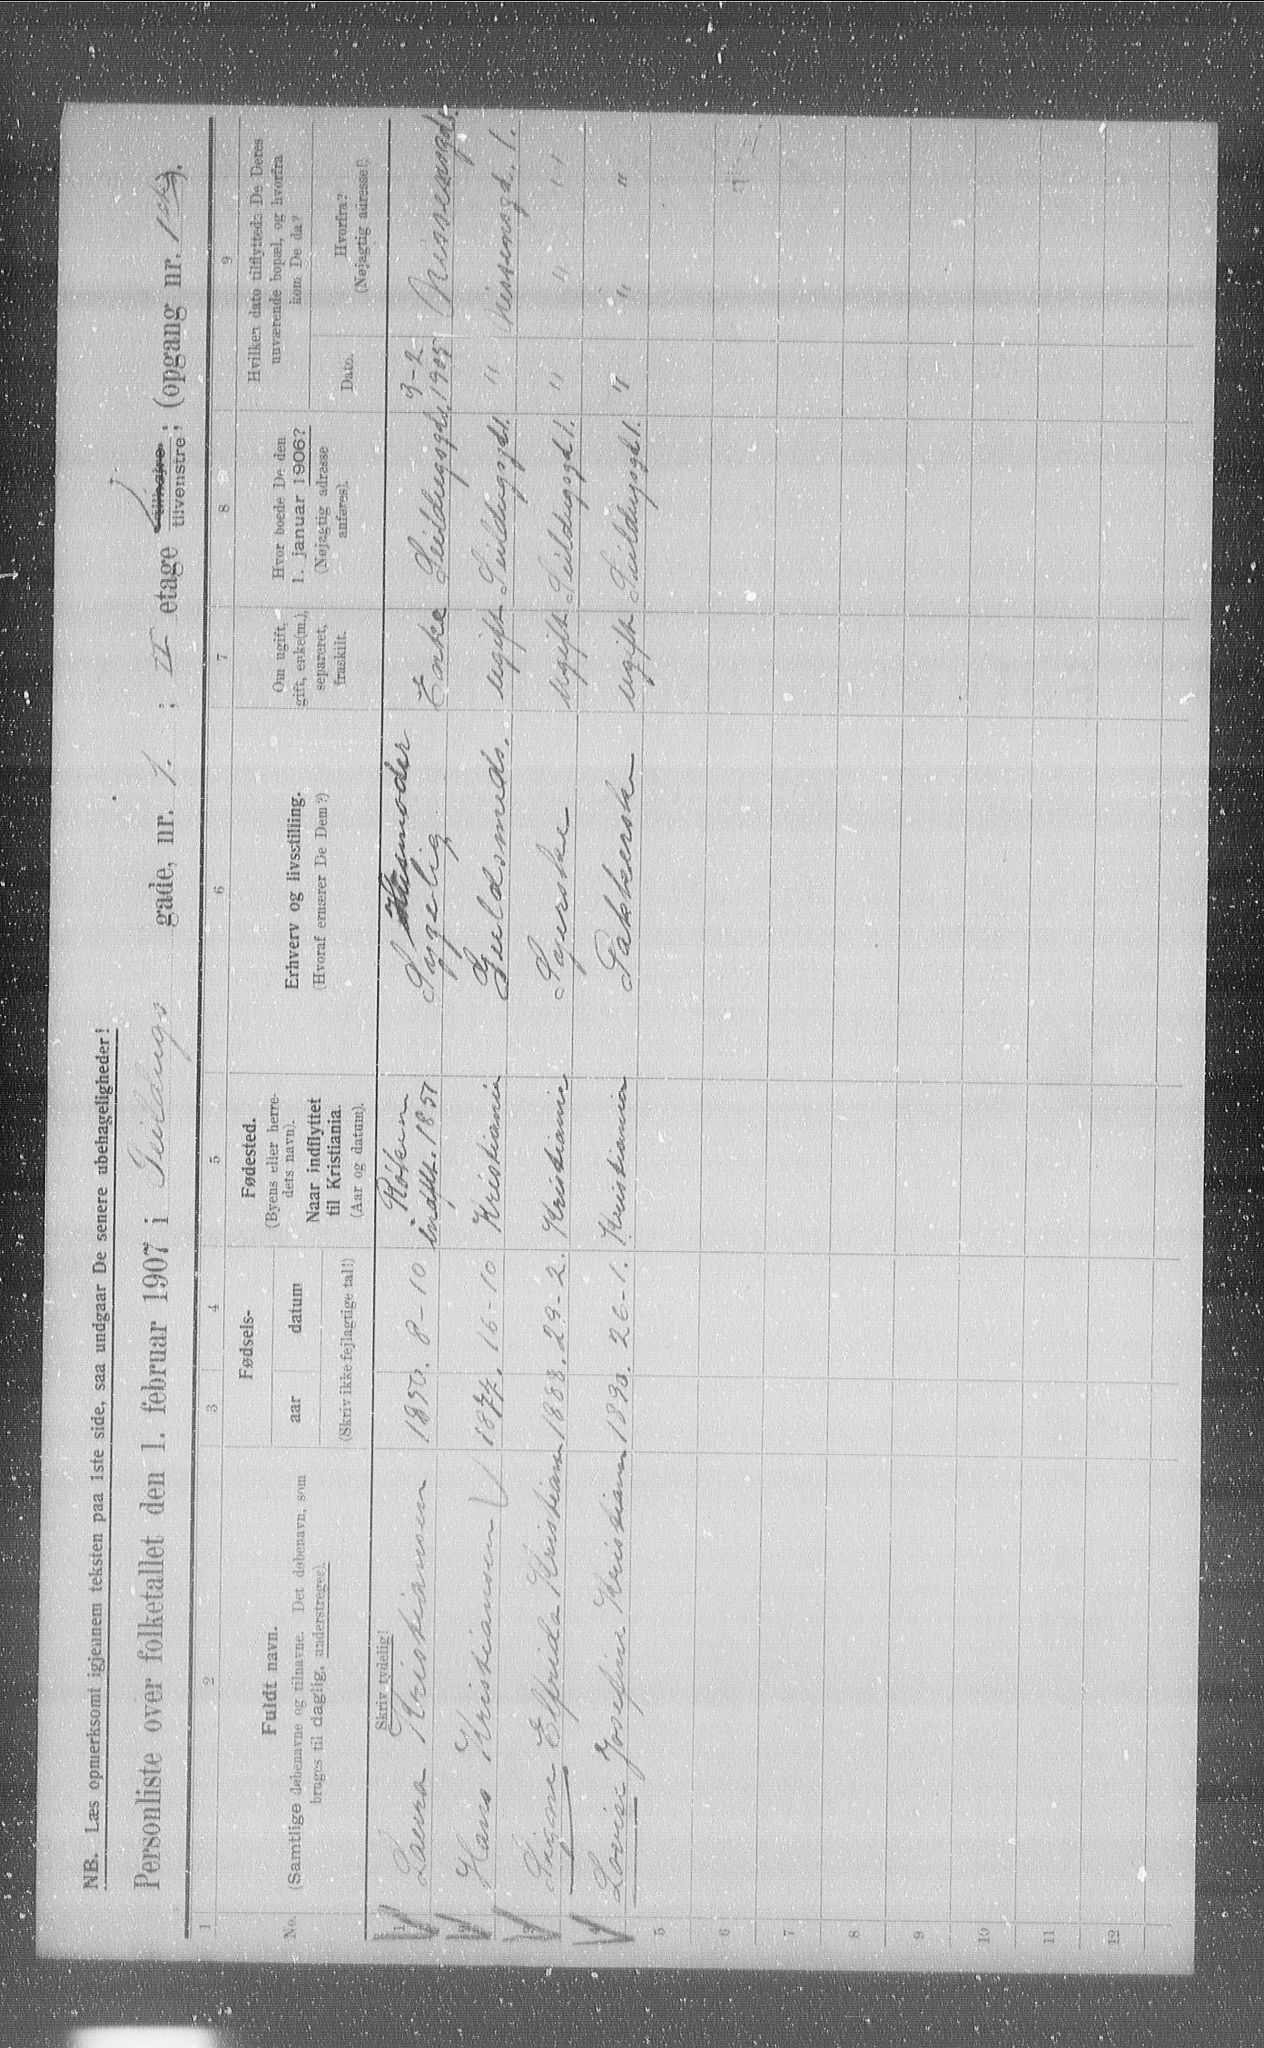 NB. Læs opmerksomt igjennem teksten paa 1ste side, saa undgaar De senere ubehageligheder!
Personliste over folketallet den 1. februar 1907 i Seildugs gade, nr. 1. ; II etage tilhøjre tilvenstre; (opgang nr. 1
1 2 3 4 5 6 7 8 9
No.
Fuldt navn.
(Samtlige døbenavne og tilnavne. Det døbenavn, som
bruges til daglig, understreges).
Fødsels-
aar datum
(Skriv ikke fejlagtige tal!)
Fødested.
(Byens eller herre-
dets navn).
Naar indflyttet
til Kristiania.
(Aar og datum).
Erhverv og livsstilling.
(Hvoraf ernærer De Dem?)
Om ugift,
gift, enke(m.),
separeret,
fraskilt.
Hvor boede De den
1. januar 1906?
(Nøjagtig adresse
anføres).
Hvilken dato tilflyttede De Deres
nuværende bopæl, og hvorfra
kom De da?
Dato.
Hvorfra?
(Nøjagtig adresse!)
Skriv tydelig!
1 Laura Kristiansen 1850. 8-10 Røken indflt. 1851 Husmoder Sygelig Enke Seildugsgd. 9-2-1905 Nissensgd.
2 Hans Kristiansen 1877. 16-10 Kristiania Guldsmeds. ugift Seildugsgd 1. " Nissensgd. 1.
3 Signe Elfrida Kristiansen 1888. 29-2. Kristiania Syerske ugift Seildugsgd 1. " "
4 Lovise Josefine Kristiansen 1890. 26-1. Kristiania Pakkerske ugift Seildugsgd 1. " " "
5
6
7
8
9
10
11
12